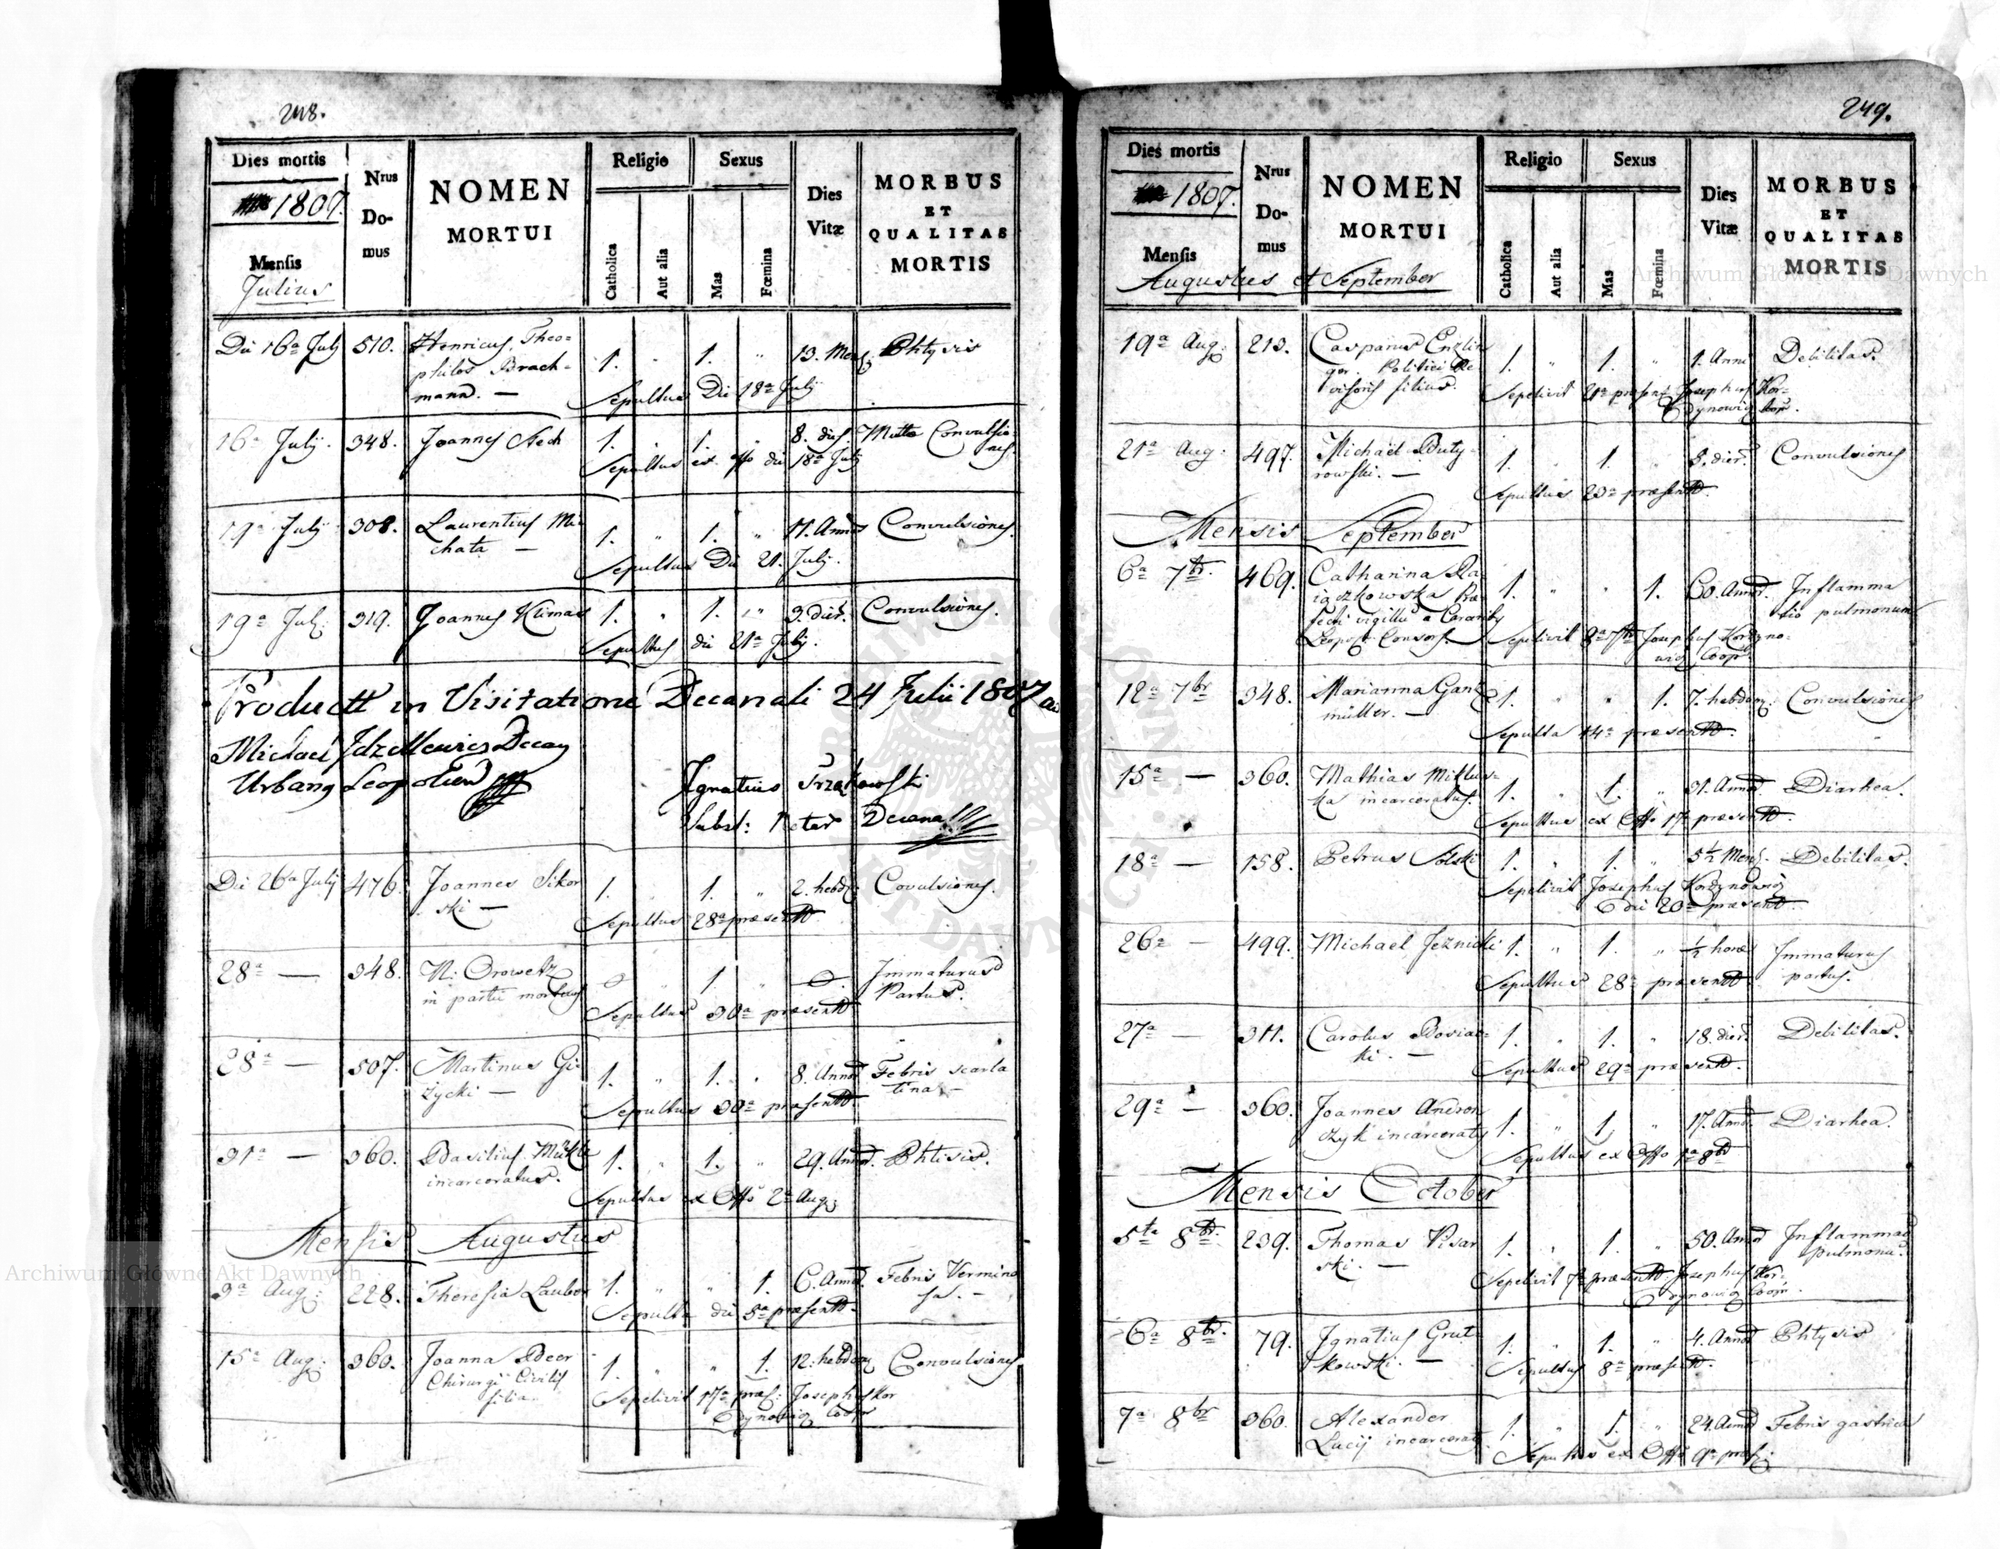 248.
Dies mortis
1807.
Mensis
Julius
Nrus
Do-
mus
NOMEN
MORTUI
Religio
Catholica
Aut alia
Sexus
Mas
Fœmina
Dies
Vitæ
MORBUS
ET
QUALITAS
MORTIS
Die 16a July 510. Henricus Theo=
philus Brach= 1. " 1. " 13. Mens. Phtysis
mann. — Sepultus Die 18a July
16a July. 348. Joannes 1. " 1. " 8. dies. Convulsio
nes.
Sepultus ex offo die 18a July
19a July 308. Laurentius Mi
chata — 1. " 1. " 11. Annos Convulsiones.
Sepultus Die 21. July.
19a July. 319. Joannes Klimas 1. " 1. " 3. dier. Convulsiones.
Sepultus die 21a July.
Product in Visitatione Decanali 24 Julii 1807
Michael Decan
Urban Leopolien
Ignatius
Subst: Notar Decana
Die 26a July 476. Joannes Sikor
ski — 1. " 1. " 2. hebd. Covulsiones.
Sepultus 28a præsent
28a — 348. N: Orowetz
in partu mortuus 1 Immaturus
Partus.
Sepultus 30a præsent
28a — 507. Martinus Gi
życki — 1. " 1. " 8. Annor Febris scarla
tina —
Sepultus 30a præsent
31a — 360. Basilius
incarceratus. 1. " 1. " 29. Annor. Phtisis.
Sepultus ex Offo 2a Aug:
Mensis Augustus
3a Aug: 228. Theresia Lauber 1. " " 1. 6. Annor. Febris Vermino
sa. —
Sepulta die 5a præsent
15a Aug: 360. Joanna Beer
Chirurgi Civilis
filia 1. " " 1. 12. hebdom Convulsiones
Sepelivit 17a præs: Josephus Kor
dynowicz Coopr
249.
Dies mortis
1807.
Mensis
Augustus et September
Nrus
Do-
mus
NOMEN
MORTUI
Religio
Catholica
Aut alia
Sexus
Mas
Fœmina
Dies
Vitæ
MORBUS
ET
QUALITAS
MORTIS
19a Aug: 213. Casparus Enzlin
ger. Politici Re
visoris filius. 1. " 1. " 1. Anni Debilitas.
Sepelivit 21a præsent Josephus Kor=
dynowicz Coop.
21a Aug: 497. Michael Buty
rowski. — 1. " 1. " 5. dier. Convulsiones
Sepultus 23a præsent.
Mensis September
6a 7br. 469. Catharina Ra
iączkowska Præ
fecti vigilu a
Leopol: Consors. 1. " " 1. 60. Annor. Inflamma
tio pulmonum
Sepelivit 8a 7br Josephus Kordyno=
wicz Coop.
12a 7br 348. Marianna Ganz
müller. — 1. " " 1. 7. hebdom. Convulsiones
Sepulta 14a præsent.
15a — 360. Mathias Miklus
ka incarceratus. 1. " 1. " 31. Annor Diarhea.
Sepultus ex Offo 17a præsent.
18a — 158. Petrus Solski 1. " 1. " 5½ Mens. Debilitas.
Sepelivit Josephus Kordynowicz
C die 20a præsent.
26a — 499. Michael Jeznicki 1. " 1. " ½ horæ Immaturus
partus.
Sepultus 28a præsent
27a — 311. Carolus Bosiac=
ki. — 1. " 1. " 18. dier. Debilitas.
Sepultus 29a præsent.
29a — 360. Joannes Andron
czyk incarceratus 1. " 1. " 17. Annor. Diarhea.
Sepultus ex Offo 1a 8br
Mensis October
5ta 8br. 239. Thomas Pisar
ski. — 1. " 1. " 50. Annor Inflammao
pulmonu.
Sepelivit 7a præsent Josephus Kor=
dynowicz Coop.
6a 8br. 79. Ignatius Grut
kowski. — 1. " 1. " 4. Annor Phtysis
Sepultus 8a præsent.
7a 8br 360. Alexander
Lucij incarcerat. 1. " 1. " 24. Annor Febris gastrica
Sepultus ex Offo 9a præs:
Archiwum Główne Akt Dawnych
Archiwum Główne Akt Dawnych
ARCHIWUM GŁÓWNE AKT DAWNYCH